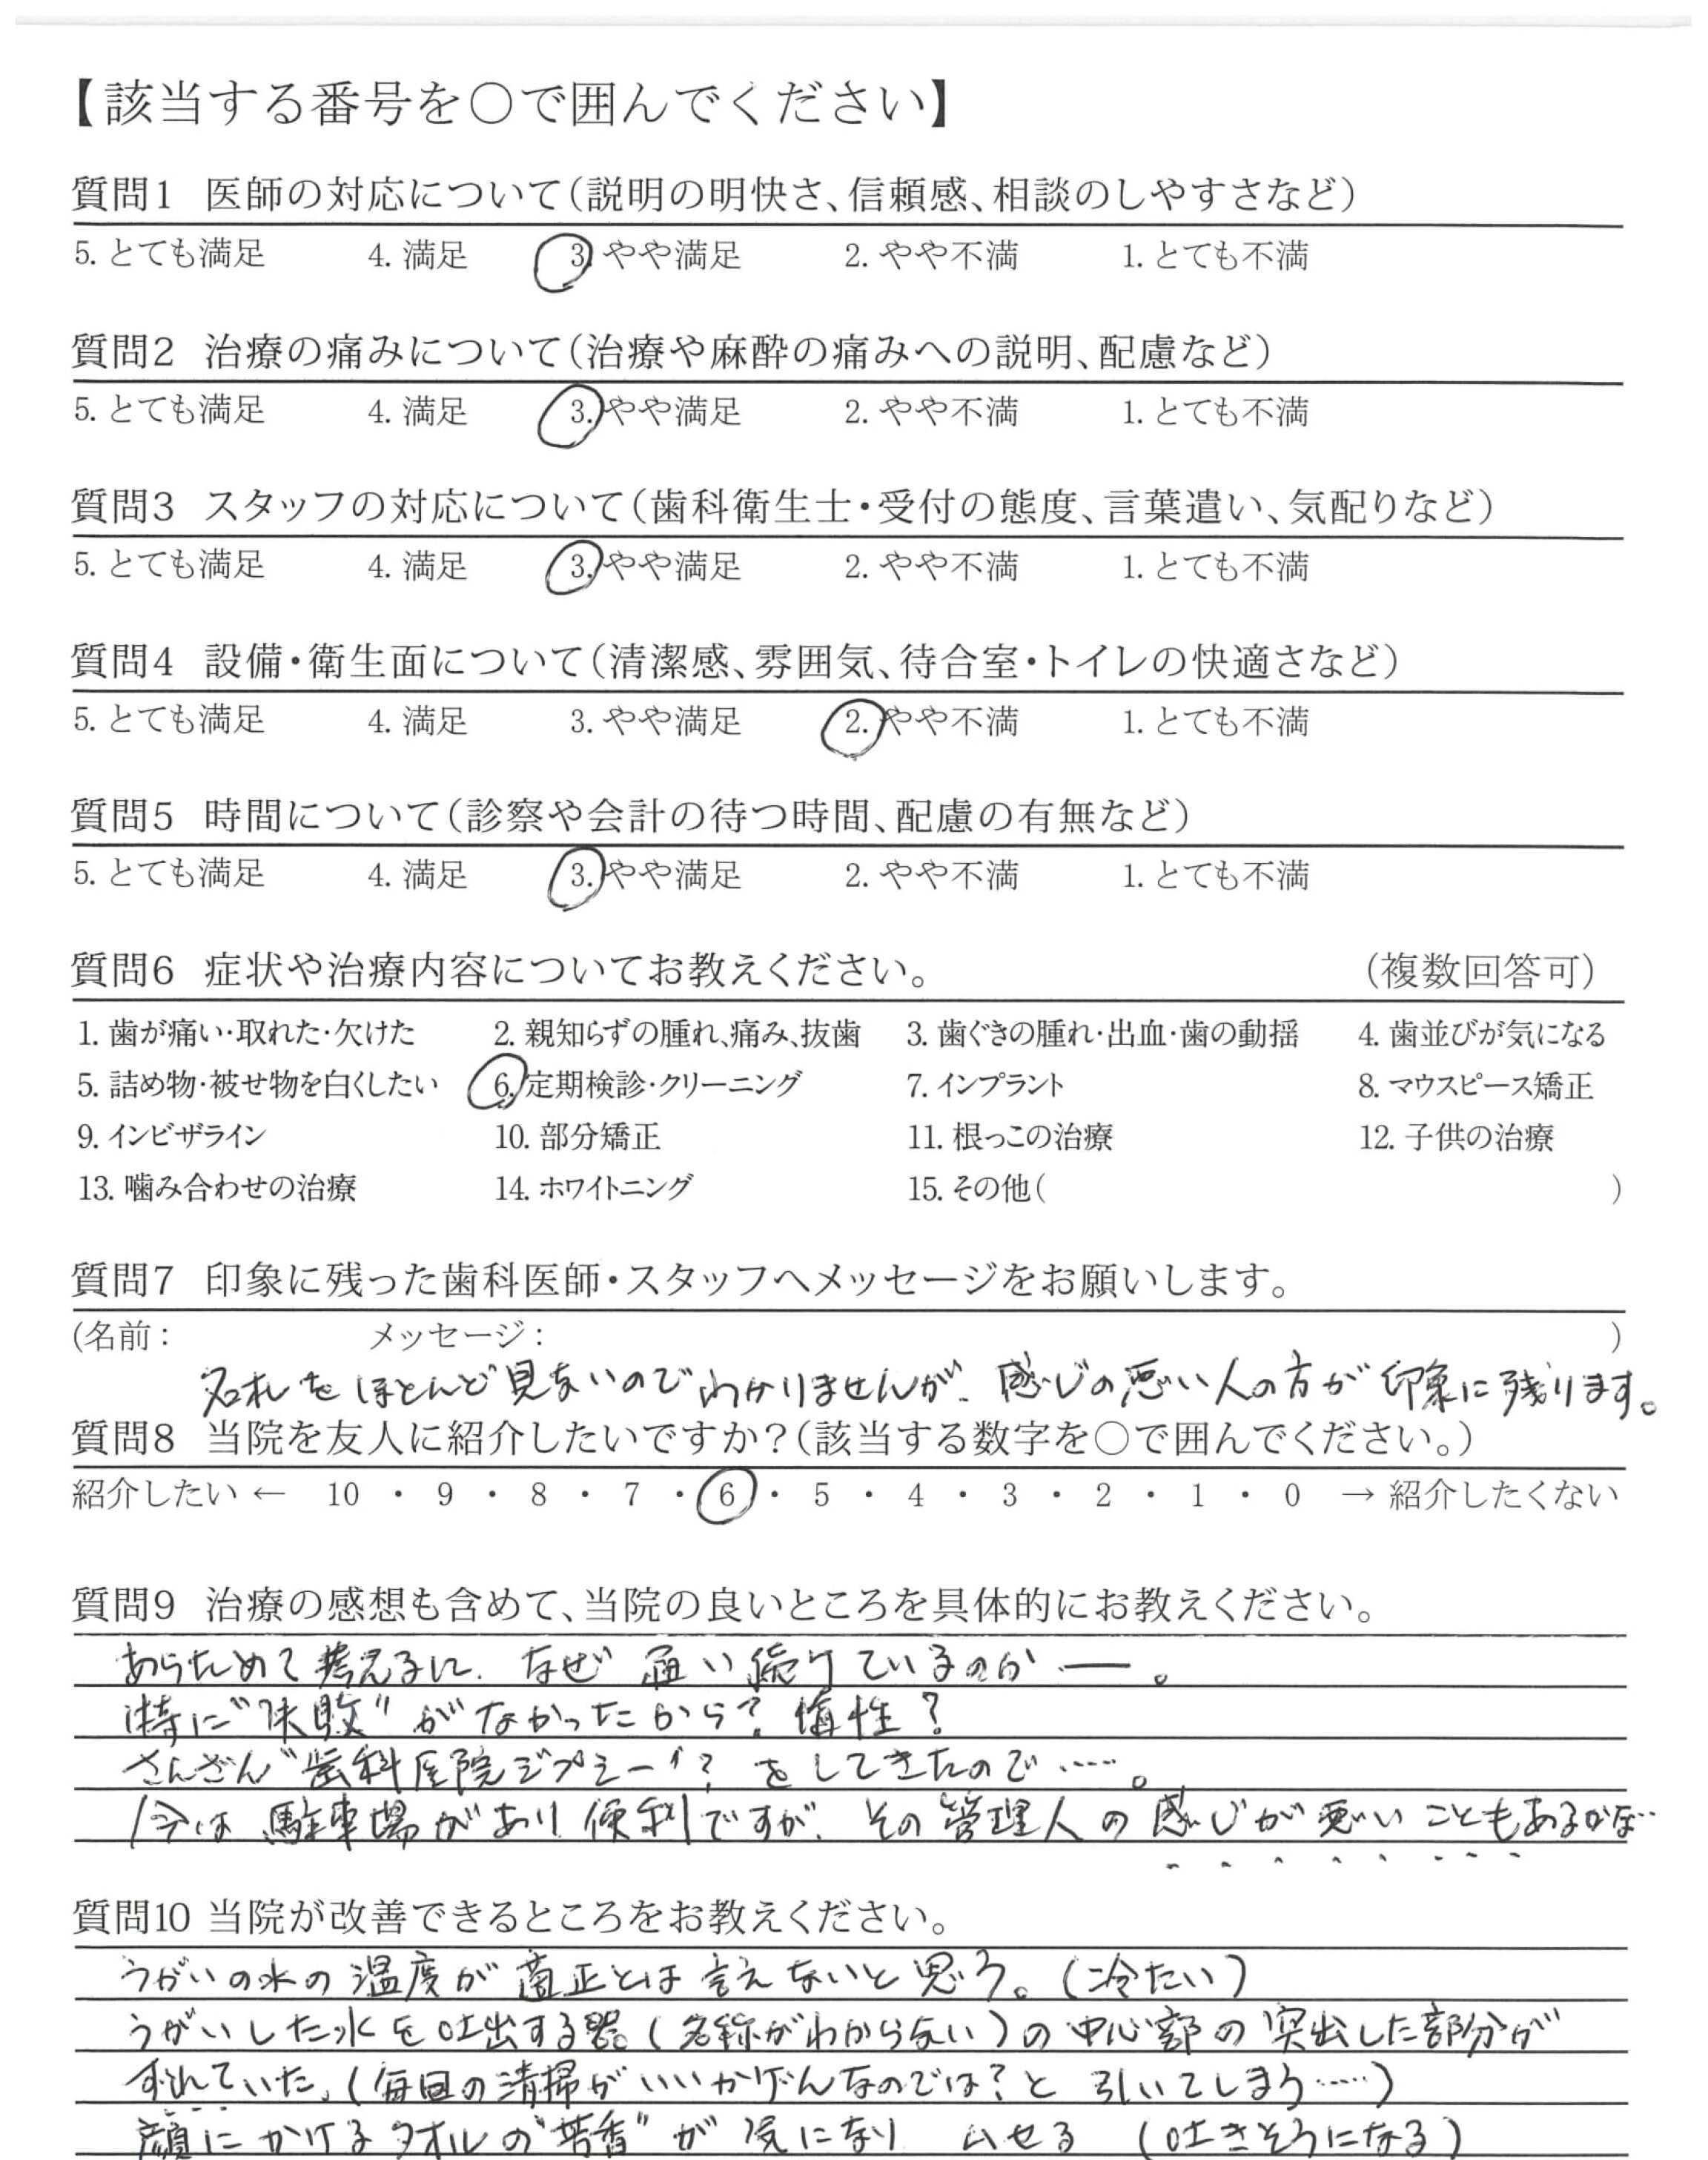 【該当する番号を○で囲んでください】
質問1 医師の対応について(説明の明快さ、信頼感、相談のしやすさなど)
5. とても満足 4. 満足 3. やや満足 2. やや不満 1. とても不満
質問2 治療の痛みについて(治療や麻酔の痛みへの説明、配慮など)
5. とても満足 4. 満足 3. やや満足 2. やや不満 1. とても不満
質問3 スタッフの対応について(歯科衛生士・受付の態度、言葉遣い、気配りなど)
5. とても満足 4. 満足 3. やや満足 2. やや不満 1. とても不満
質問4 設備・衛生面について(清潔感、雰囲気、待合室・トイレの快適さなど)
5. とても満足 4. 満足 3. やや満足 2. やや不満 1. とても不満
質問5 時間について(診察や会計の待つ時間、配慮の有無など)
5. とても満足 4. 満足 3. やや満足 2. やや不満 1. とても不満
質問6 症状や治療内容についてお教えください。 (複数回答可)
1. 歯が痛い・取れた・欠けた 2. 親知らずの腫れ、痛み、抜歯 3. 歯ぐきの腫れ・出血・歯の動揺 4. 歯並びが気になる
5. 詰め物・被せ物を白くしたい 6. 定期検診・クリーニング 7. インプラント 8. マウスピース矯正
9. インビザライン 10. 部分矯正 11. 根っこの治療 12. 子供の治療
13. 噛み合わせの治療 14. ホワイトニング 15. その他( )
質問7 印象に残った歯科医師・スタッフへメッセージをお願いします。
(名前: メッセージ: )
名札をほとんど見ないのでわかりませんが、感じの悪い人の方が印象に残ります。
質問8 当院を友人に紹介したいですか?(該当する数字を○で囲んでください。)
紹介したい ← 10 ・ 9 ・ 8 ・ 7 ・ 6 ・ 5 ・ 4 ・ 3 ・ 2 ・ 1 ・ 0 → 紹介したくない
質問9 治療の感想も含めて、当院の良いところを具体的にお教えください。
あらためて考えるに、なぜ通い続けているのか―。
特に"失敗"がなかったから? 惰性?
さんざん"歯科医院ジプシー"?をしてきたので……。
今は駐車場があり便利ですが、その管理人の感じが悪いこともあるかな…
質問10 当院が改善できるところをお教えください。
うがいの水の温度が適正とは言えないと思う。(冷たい)
うがいした水を吐出する器(名称がわからない)の中心部の突出した部分が
ずれていた。(毎回の清掃がいいかげんなのでは?と引いてしまう……)
顔にかけるタオルの"芳香"が気になりムせる (吐きそうになる)